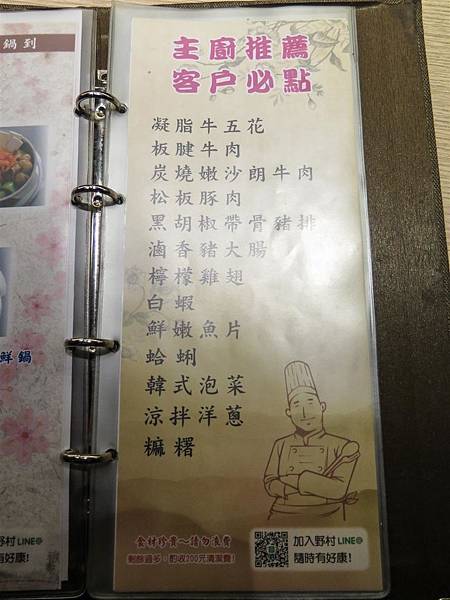 鍋到
鮮鍋
野村LINE@
有好康!
主廚推薦
客户必點
凝脂牛五花
板腱牛肉
炭燒嫩沙朗牛肉
松板豚肉
黑胡椒帶骨豬排
滷香豬大腸
檸檬雞翅
白蝦
鮮嫩魚片
蛤蜊
韓式泡菜
涼拌洋蔥
糜糬
食材珍貴~請勿浪費
剩餘過多,酌收200元清潔費!
加入野村LINE@
隨時有好康!